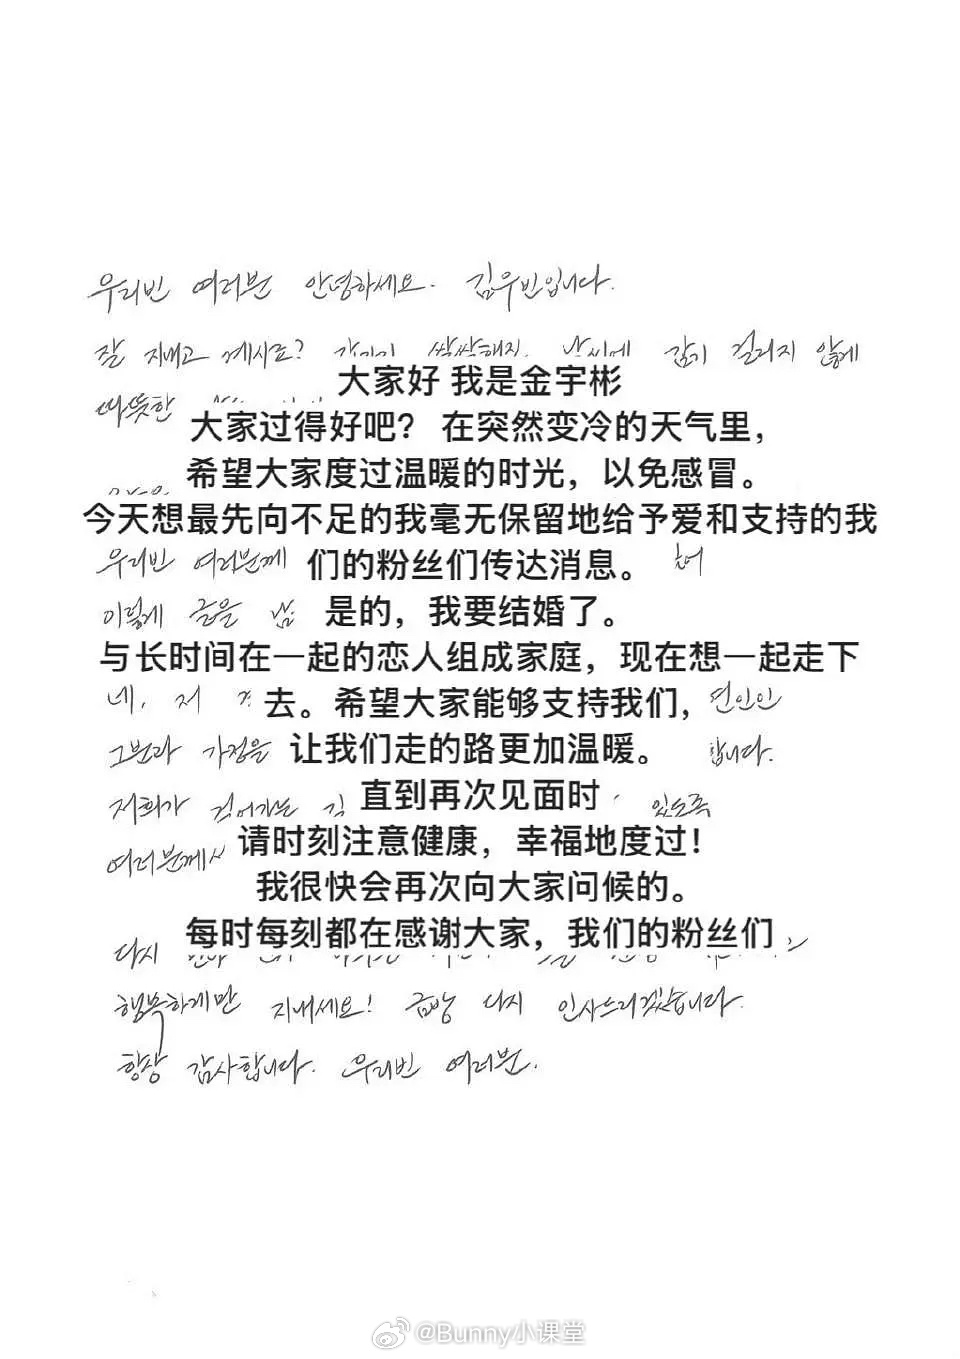 우리빈 여러분 안녕하세요. 김우빈입니다.
잘 지내고 계시죠? 갑자기 쌀쌀해진 날씨에 감기 걸리지 않게
따뜻한
大家好 我是金宇彬
大家过得好吧？ 在突然变冷的天气里，
希望大家度过温暖的时光，以免感冒。
今天想最先向不足的我毫无保留地给予爱和支持的我
우리빈 여러분께 们的粉丝们传达消息。
이렇게 글을 是的，我要结婚了。
与长时间在一起的恋人组成家庭，现在想一起走下
네, 저 去。希望大家能够支持我们， 연인인
그분과 가정을 让我们走的路更加温暖。 합니다.
저희가 걸어가는 直到再次见面时 있도록
여러분께서 请时刻注意健康，幸福地度过！
我很快会再次向大家问候的。
다시 每时每刻都在感谢大家，我们的粉丝们
행복하게만 지내세요! 금방 다시 인사드리겠습니다.
항상 감사합니다. 우리빈 여러분.
@Bunny小课堂